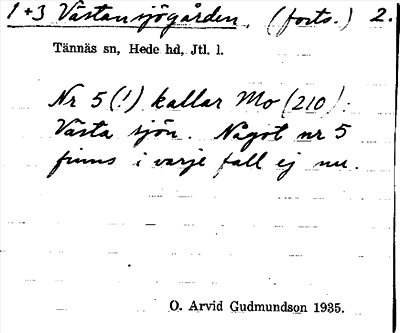 1+3 Västansjögården. (forts.) 2.
Tännäs sn, Hede hd, Jtl. l.
Nr 5 (!) kallar Mo (210):
Västa sjön. Något nr 5
finns i varje fall ej nu.
O. Arvid Gudmundson 1935.